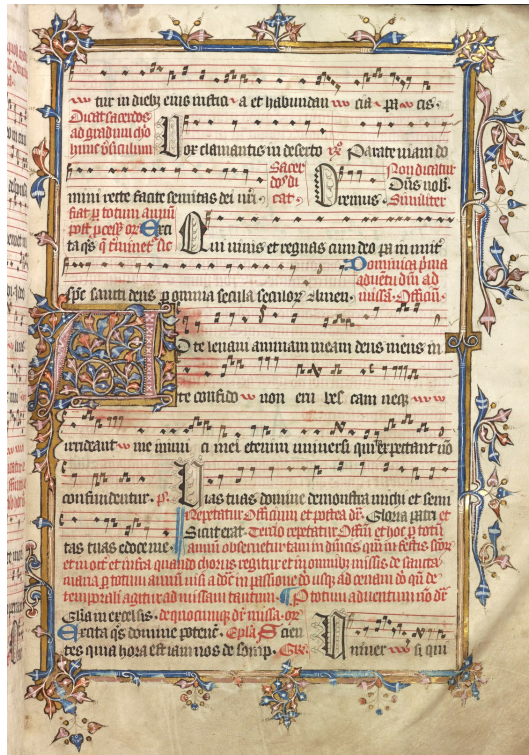 tur in dieb eius iusticia et habundan cia pacis.
Dicat sacerdos
ad gradum cho
hunc versiculum Vox clamantis in deserto Parate viam do
mini recte facite semitas dei nri. Sacer dos di cat. Oremus. Non dicatur Dns vob. Similiter
fiat p totum annu
post pcess or Exci
ta qs Qui vivis et regnas cum deo pa in unit
spc sancti deus p omnia secula seculor Amen. Dominica pma adventu dni ad missa. Officiu.
Ad te levavi animam meam deus meus in
te confido non eru bes cam neqz
irrideant me inimi ci mei etenim universi qui te expectant no
confundentur. Vias tuas domine demonstra michi et semi
tas tuas edoce me Repetatur Officium et postea dr. Gloria patri et
Sicut erat. Tercio repetatur Offm et hoc p totu
annu observetur tam in dnicis qm in festis scor
et in oct et infra quando chorus regitur et in omnibus missis de sancta
maria p totum annu nisi a dnica in passione do usqz ad cenam do qn de
temporali agitur ad missam tantum. P totum adventum no dr
Glia in excelsis. de quocunqz dr missa. or
Excita qs domine potenc. Epla Scien
tes quia hora est iam nos de somp. Gr. Univer si qui